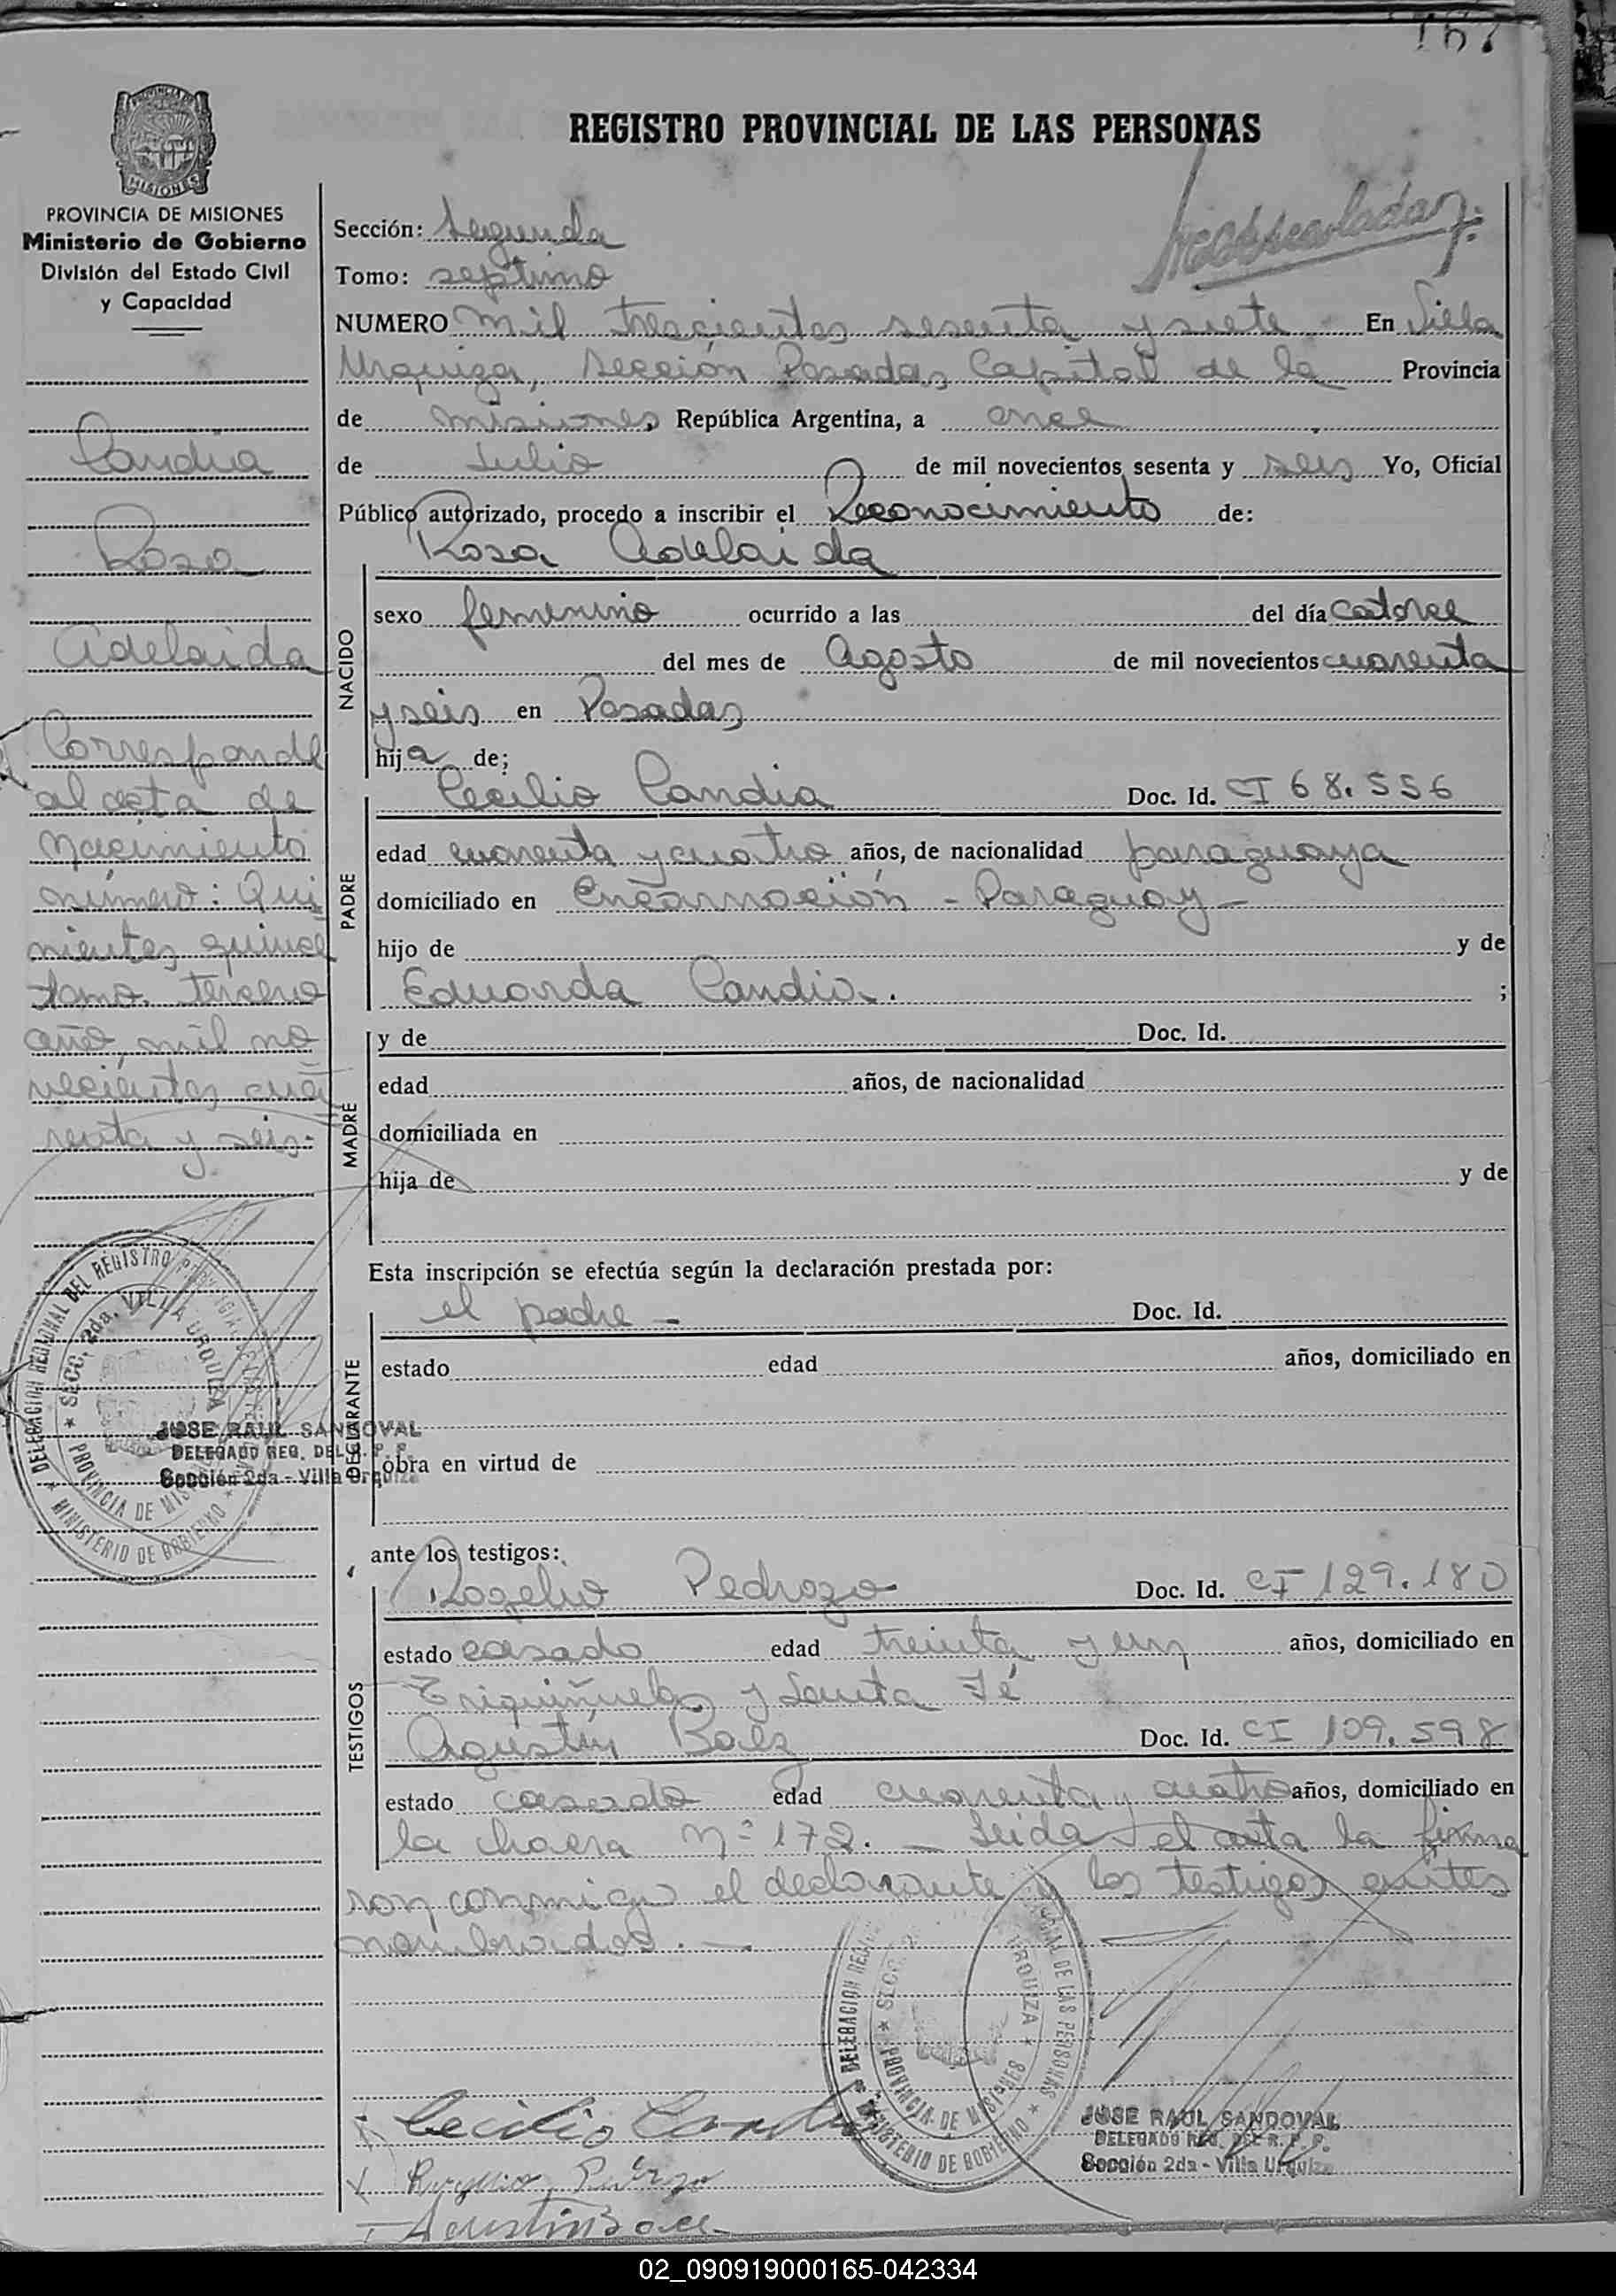 167
REGISTRO PROVINCIAL DE LAS PERSONAS
PROVINCIA DE
MISIONES
PROVINCIA DE MISIONES
Ministerio de Gobierno
División del Estado Civil
y Capacidad
Candia
Rosa
Adelaida
Corresponde
al acta de
nacimiento
número: Qui
nientos quince
tomo. tercero
año, mil no
vecientos cua
renta y seis.
DELEGACION REGIONAL DEL REGISTRO PROVINCIAL DE LAS
SECC. 2da. VILLA URQUIZA
PROVINCIA DE MISIONES
MINISTERIO DE GOBIERNO
JOSE RAUL SANDOVAL
DELEGADO REG. DEL R. P. P.
Sección 2da - Villa Urquiza
Sección: Segunda
Tomo: septimo
NUMERO mil trescientos sesenta y siete En Villa
Urquiza, Sección Posadas Capital de la Provincia
de misiones República Argentina, a once
de Julio de mil novecientos sesenta y seis Yo, Oficial
Público autorizado, procedo a inscribir el Reconocimiento de:
Rosa Adelaida
NACIDO
sexo femenino ocurrido a las del día catorce
del mes de Agosto de mil novecientos cuarenta
y seis en Posadas
hija de;
PADRE
Cecilio Candia Doc. Id. CI 68.556
edad cuarenta y cuatro años, de nacionalidad paraguaya
domiciliado en Encarnación - Paraguay -
hijo de y de
Eduarda Candia. ;
MADRE
y de Doc. Id.
edad años, de nacionalidad
domiciliada en
hija de y de
Esta inscripción se efectúa según la declaración prestada por:
DECLARANTE
el padre - Doc. Id.
estado edad años, domiciliado en
obra en virtud de
ante los testigos:
TESTIGOS
Rogelio Pedrozo Doc. Id. CI 129.180
estado casado edad treinta y años, domiciliado en
y Santa Fé
Agustín Baez Doc. Id. CI 109.598
estado casado edad cuarenta y cuatro años, domiciliado en
la chacra Nº 172. - Leida el acta la firma
ron conmigo el declarante y los testigos antes
nombrados. -
DELEGACION REGIONAL DE LAS PERSONAS
SECC URQUIZA
PROVINCIA DE MISIONES
MINISTERIO DE GOBIERNO
JOSE RAUL SANDOVAL
DELEGADO REG. DEL R. P. P.
Sección 2da - Villa Urquiza
Cecilio Candia
Rogelio Pedrozo
Agustin Baez
02_090919000165-042334